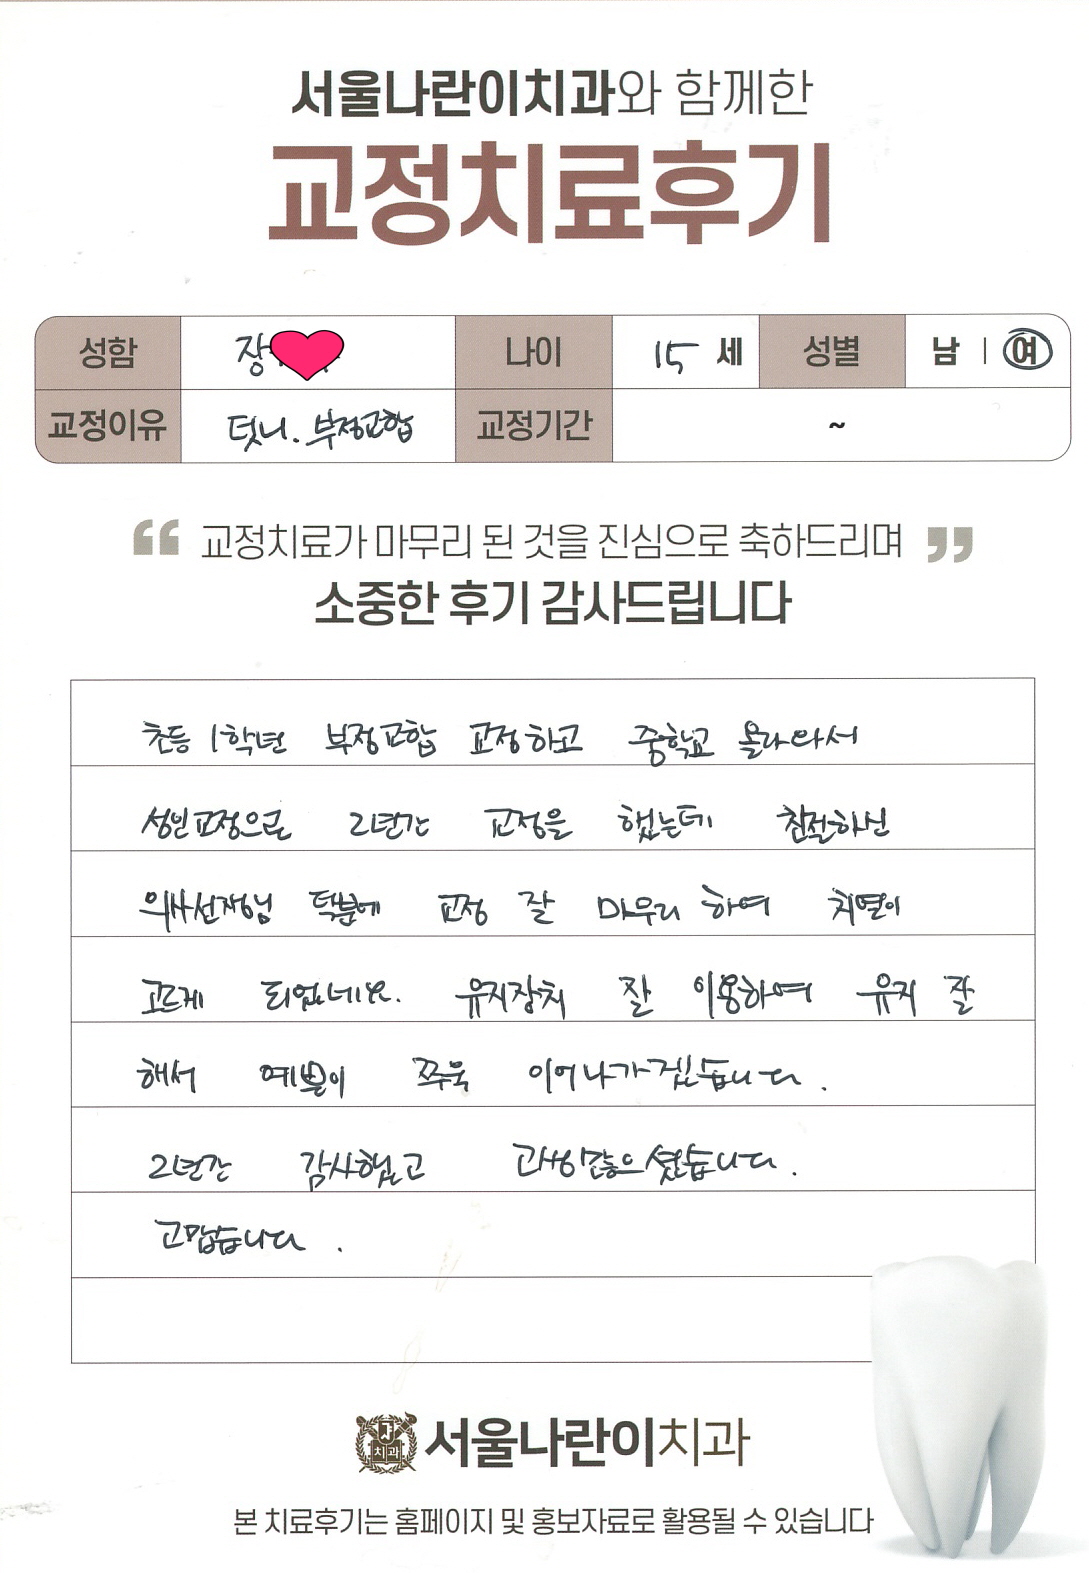 서울나란이치과와 함께한
교정치료후기
성함 장 나이 15 세 성별 남 | 여
교정이유 덧니. 부정교합 교정기간 ~
“ 교정치료가 마무리 된 것을 진심으로 축하드리며 ”
소중한 후기 감사드립니다
초등 1학년 부정교합 교정하고 중학교 올라와서
성인교정으로 2년간 교정을 했는데 친절하신
의사선생님 덕분에 교정 잘 마무리 하여 치열이
고르게 되었네요. 유지장치 잘 이용하여 유지 잘
해서 예쁜이 쭈욱 이어나가겠습니다.
2년간 감사했고 고생많으셨습니다.
고맙습니다.
치과
서울나란이치과
본 치료후기는 홈페이지 및 홍보자료로 활용될 수 있습니다